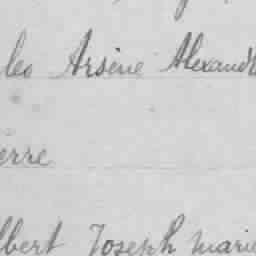 les Arsène Alexand
erre
lbert Joseph Marie